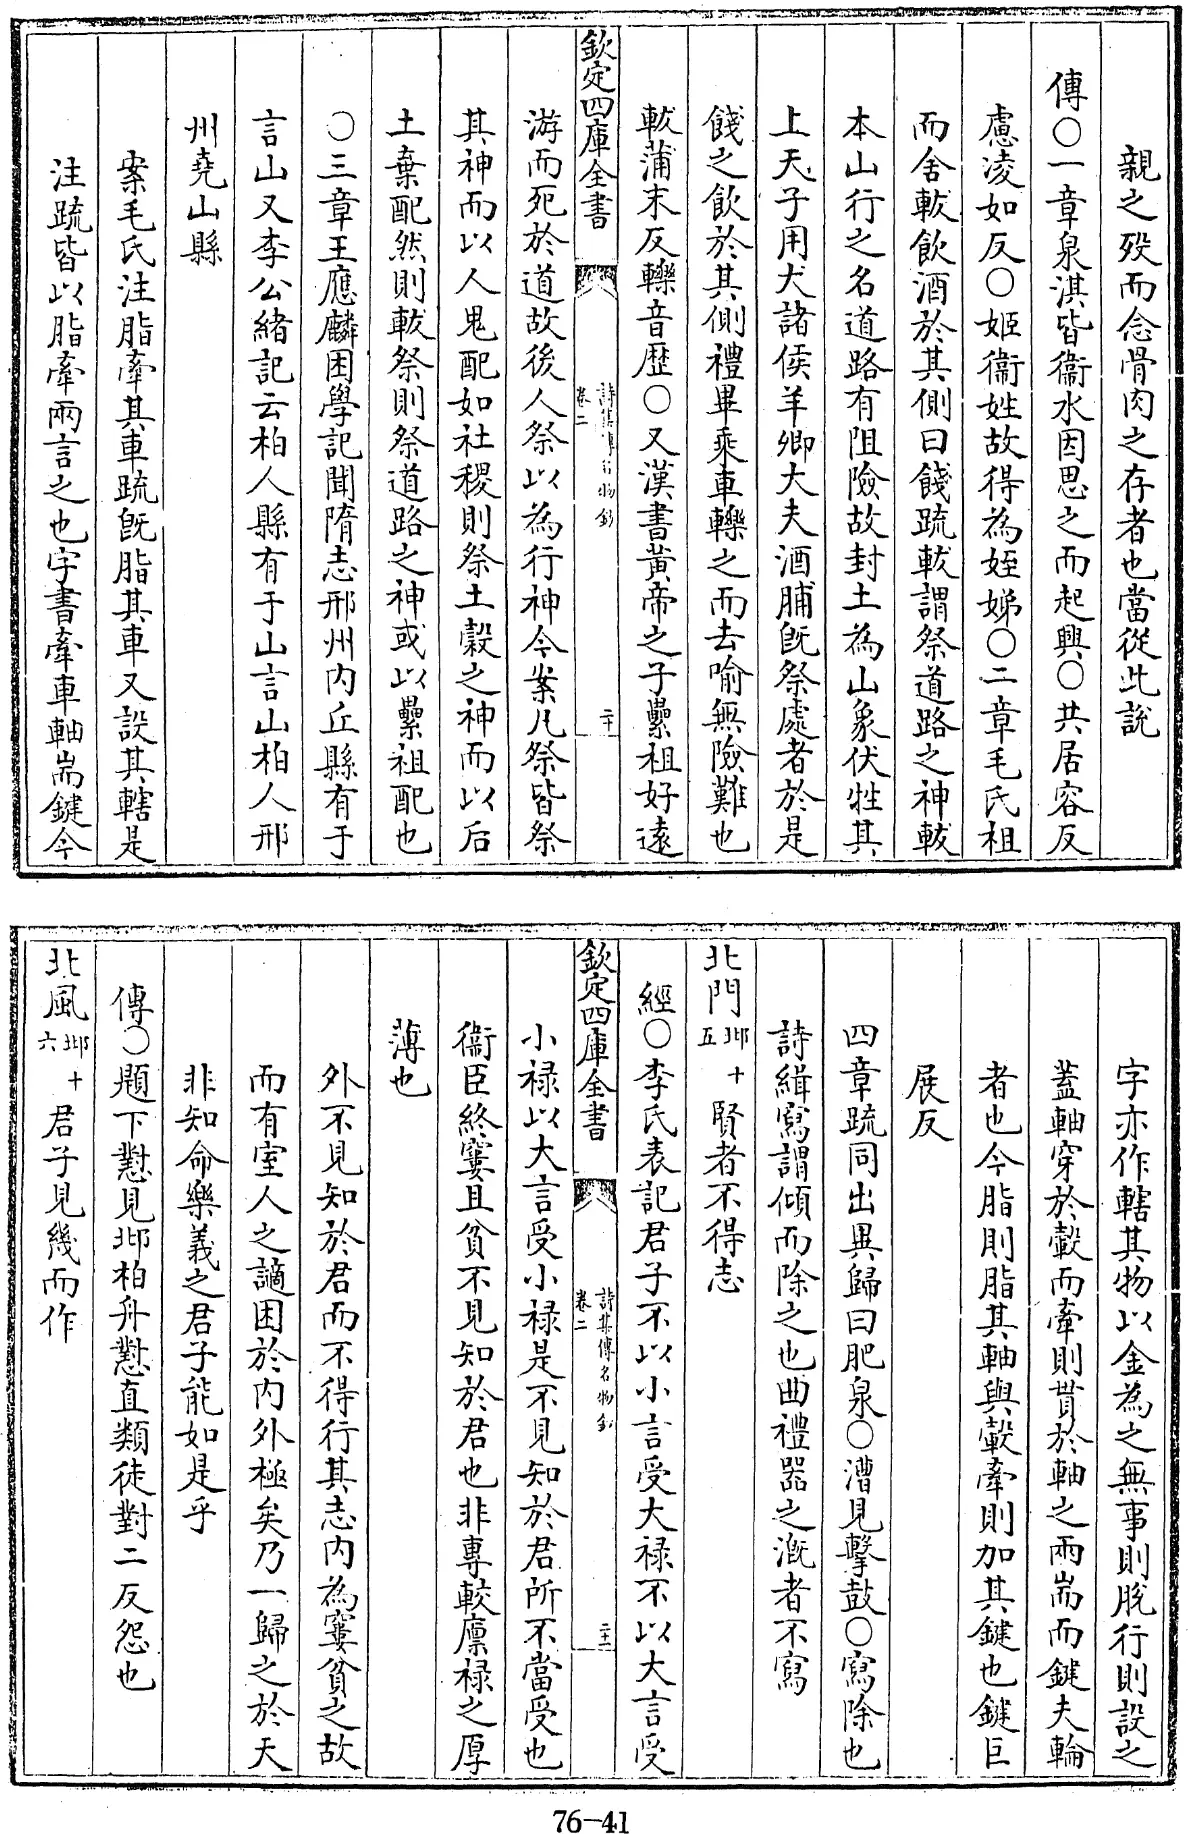 親之歿而念骨肉之存者也當從此說
傳○一章泉淇皆衞水因思之而起興○共居容反
慮凌如反○姬衞姓故得為姪娣○二章毛氏祖
而舍軷飲酒於其側曰餞疏軷謂祭道路之神軷
本山行之名道路有阻險故封土為山象伏牲其
上天子用犬諸侯羊卿大夫酒脯既祭處者於是
餞之飲於其側禮畢乘車轢之而去喻無險難也
軷蒲末反轢音歷○又漢書黃帝之子纍祖好遠
欽定四庫全書
詩集傳名物鈔
卷二
二十
游而死於道故後人祭以為行神今案凡祭皆祭
其神而以人鬼配如社稷則祭土穀之神而以后
土棄配然則軷祭則祭道路之神或以纍祖配也
○三章王應麟困學記聞隋志邢州内丘縣有于
言山又李公緒記云柏人縣有于山言山柏人邢
州堯山縣
案毛氏注脂舝其車疏既脂其車又設其轄是
注疏皆以脂舝兩言之也字書舝車軸耑鍵今
字亦作轄其物以金為之無事則脫行則設之
葢軸穿於轂而舝則貫於軸之兩耑而鍵夫輪
者也今脂則脂其軸與轂舝則加其鍵也鍵巨
展反
四章疏同出異歸曰肥泉○漕見擊鼓○寫除也
詩緝寫謂傾而除之也曲禮器之溉者不寫
北門邶十五 賢者不得志
經○李氏表記君子不以小言受大祿不以大言受
欽定四庫全書
詩集傳名物鈔
卷二
二十一
小祿以大言受小祿是不見知於君所不當受也
衞臣終窶且貧不見知於君也非專較廪祿之厚
薄也
外不見知於君而不得行其志内為窶貧之故
而有室人之讁困於内外極矣乃一歸之於天
非知命樂義之君子能如是乎
傳○題下懟見邶柏舟懟直類徒對二反怨也
北風邶十六 君子見幾而作
76-41